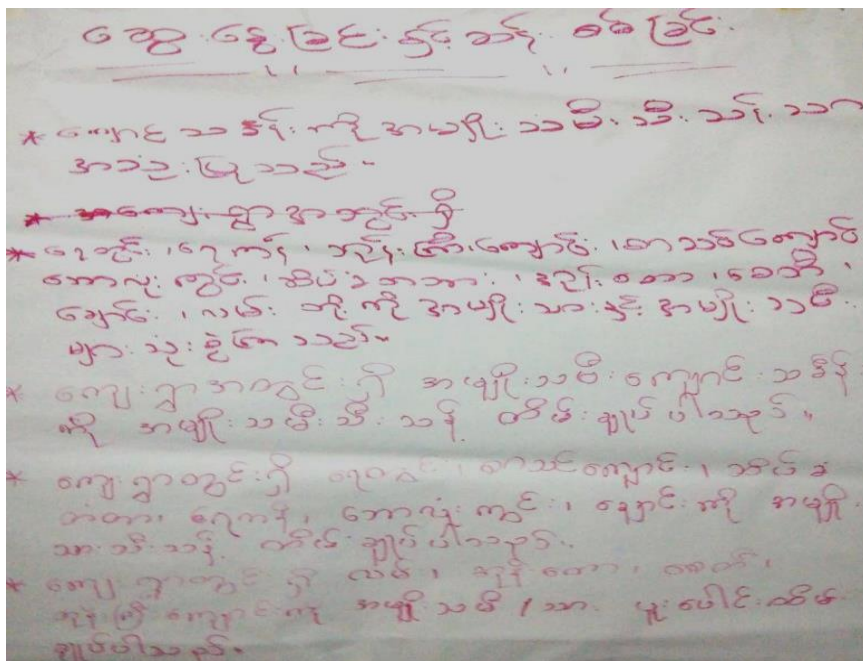 ဆွေးနွေးခြင်းနှင့်ဆန်းစစ်ခြင်း
* ကျောင်းသခန်းကို အမျိုးသမီးသီးသန့် သာ
အသုံးပြုသည်။
* အကျေးရွာအတွင်းရှိ
* ရေတွင်း၊ ရေကန်၊ ဘုန်းကြီးကျောင်း၊ စာသင်ကျောင်း
ဘောလုံးကွင်း၊ ဆိပ်ခံတံတား၊ စေတီ၊
ချောင်း၊ လမ်း တို့ကို အမျိုးသားနှင့် အမျိုးသမီး
များ သုံးစွဲကြသည်။
* ကျေးရွာအတွင်းရှိ အမျိုးသမီးကျောင်းသခန်း
ကို အမျိုးသမီးသီးသန့် ထိမ်းချုပ်ပါသည်။
* ကျေးရွာတွင်းရှိ ရေတွင်း၊ စာသင်ကျောင်း၊ ဆိပ်ခံ
တံတား၊ ရေကန်၊ ဘောလုံးကွင်း၊ ချောင်းကို အမျိုး
သားသီးသန့် ထိမ်းချုပ်ပါသည်။
* ကျေးရွာတွင်ရှိ လမ်း၊ စေတီ၊
ဘုန်းကြီးကျောင်းကို အမျိုးသမီး/သား ပူးပေါင်းထိမ်း
ချုပ်ပါသည်။